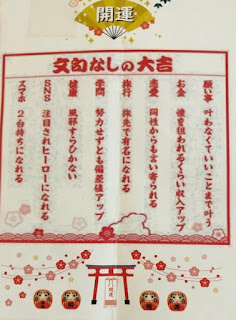 開運
文句なしの大吉
願い事 叶わなくていいことまで叶う
お金 懐を狙われるぐらい収入アップ
恋愛 同性からも言い寄られる
旅行 旅先で有名になれる
学問 努力せずとも偏差値アップ
健康 風邪すらひかない
SNS 注目されヒーローになれる
スマホ 2台持ちになれる